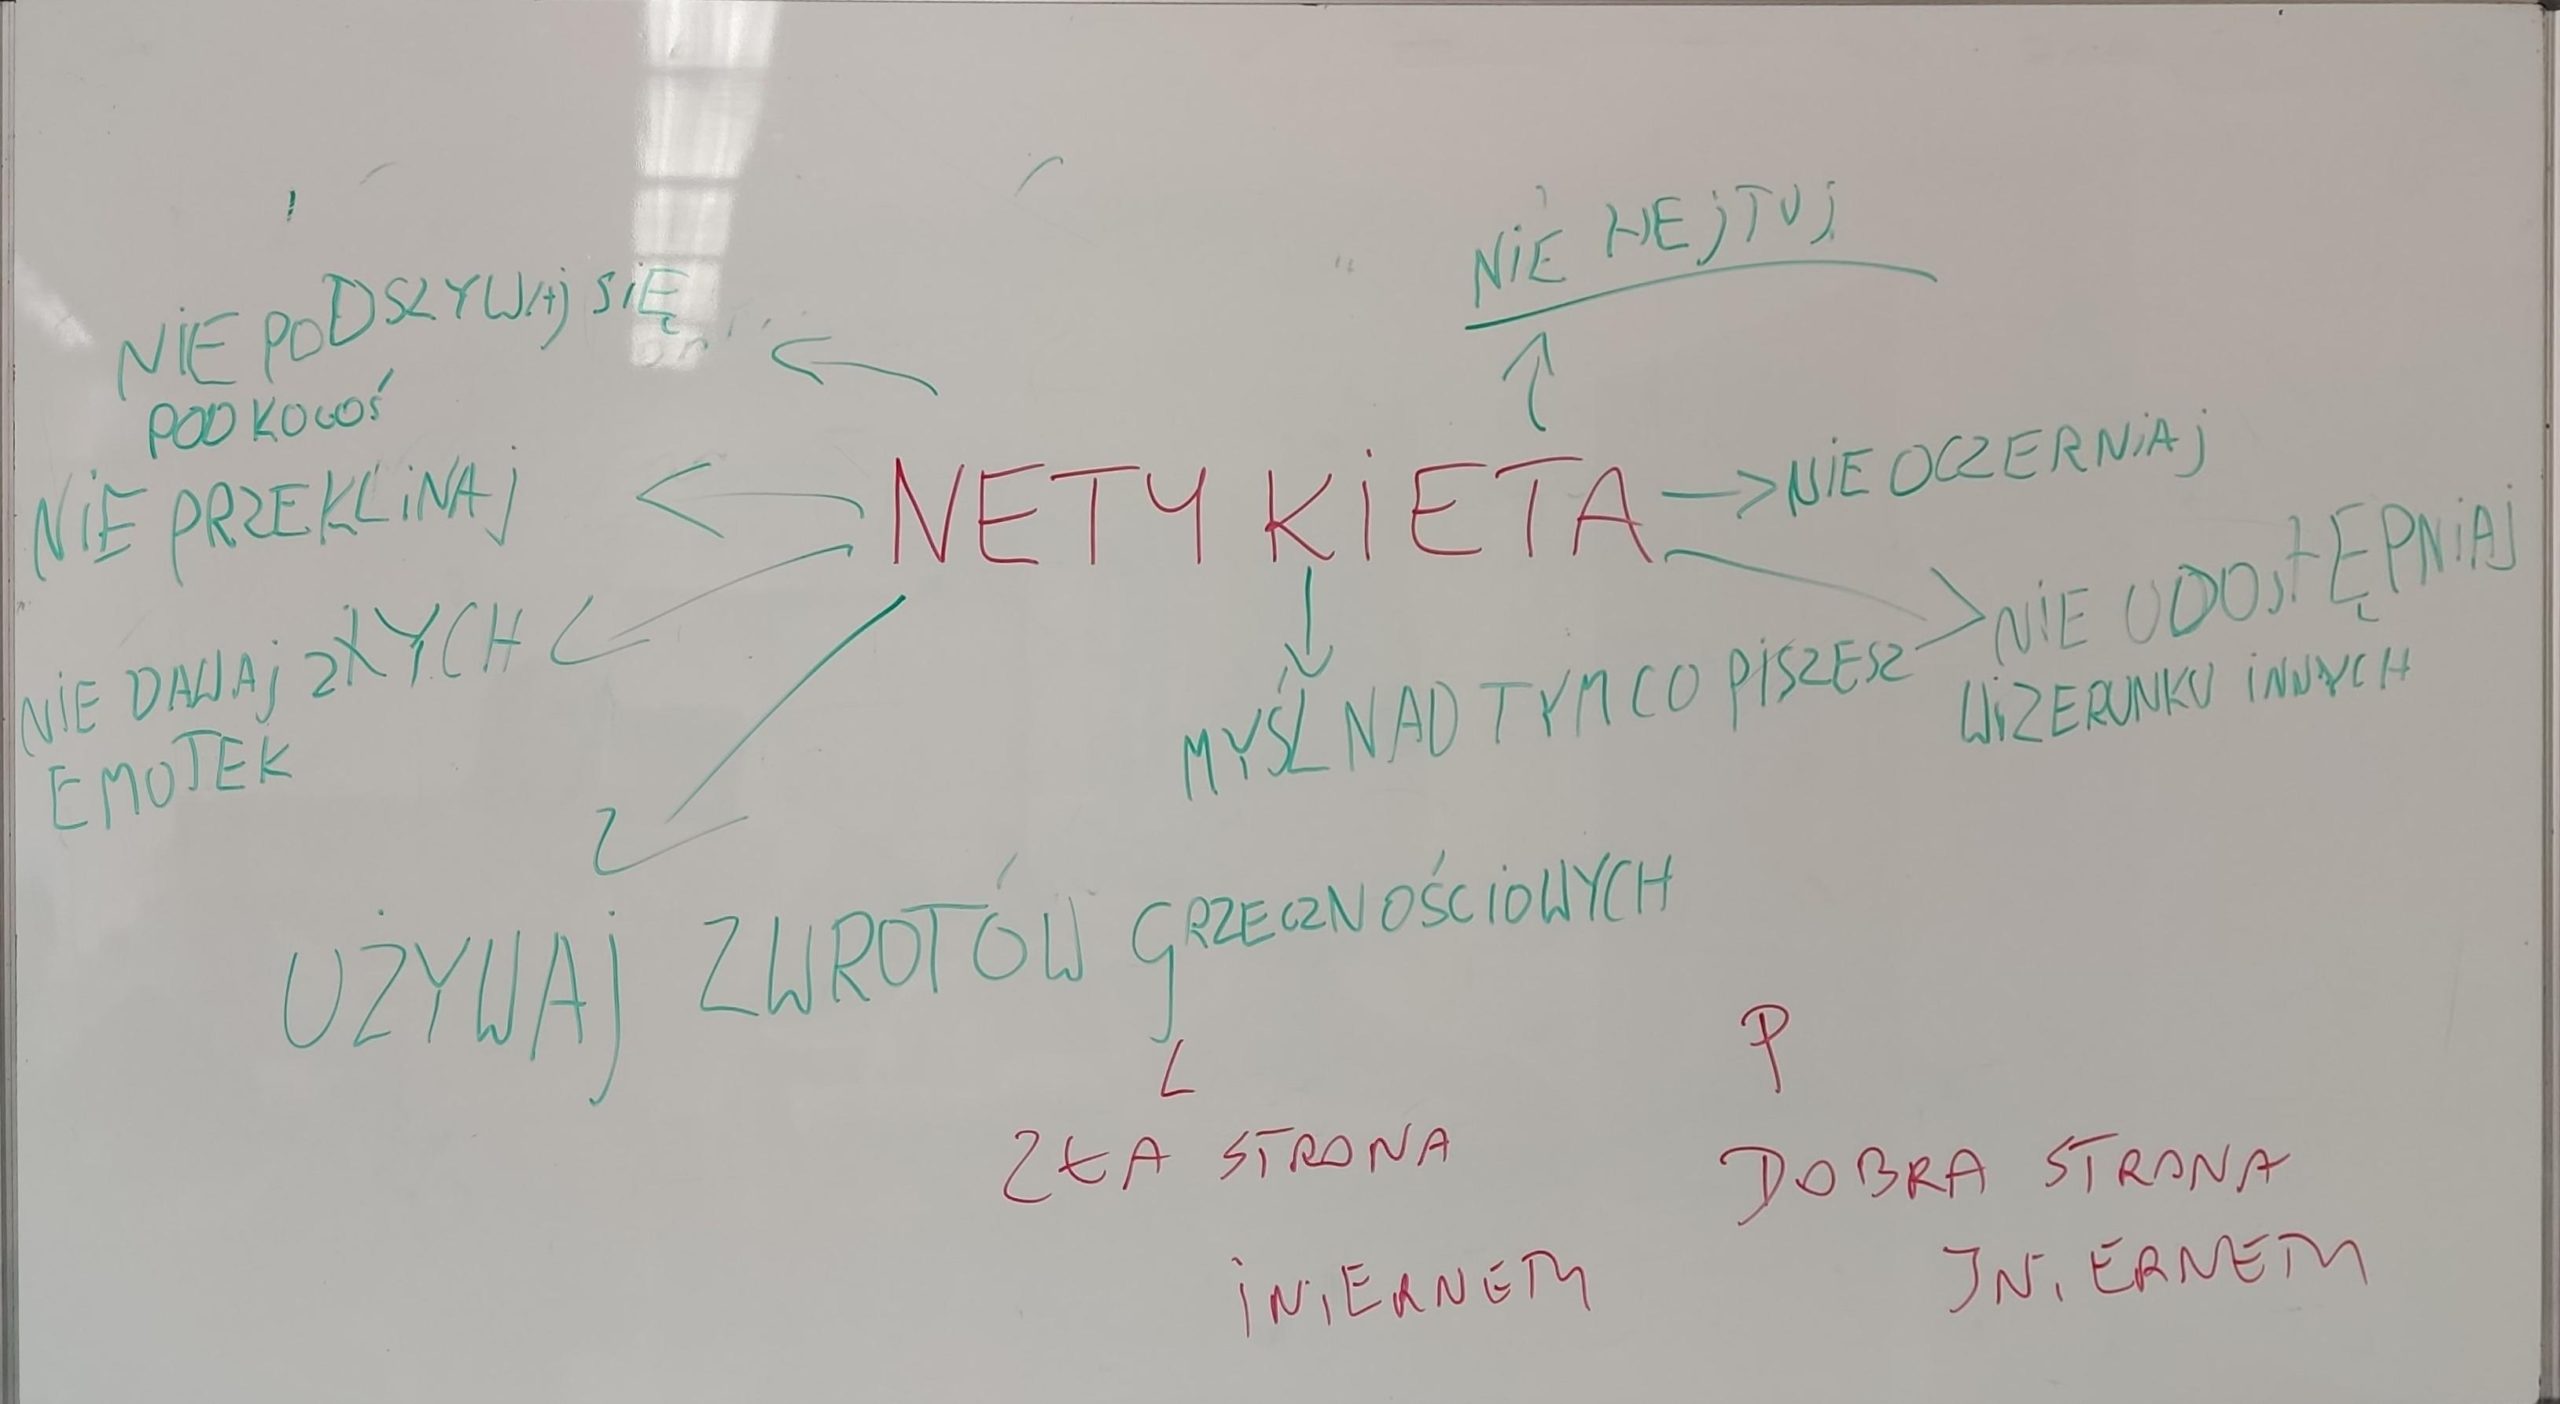 NIE HEJTUJ
NIE PODSZYWAJ SIĘ
POD KOGOŚ
NETYKIETA
NIE OCZERNIAJ
NIE PRZEKLINAJ
NIE UDOSTĘPNIAJ
WIZERUNKU INNYCH
NIE DAWAJ ZŁYCH
EMOTEK
MYŚL NAD TYM CO PISZESZ
UŻYWAJ ZWROTÓW GRZECZNOŚCIOWYCH
L
P
ZŁA STRONA
INTERNETU
DOBRA STRONA
INTERNETU